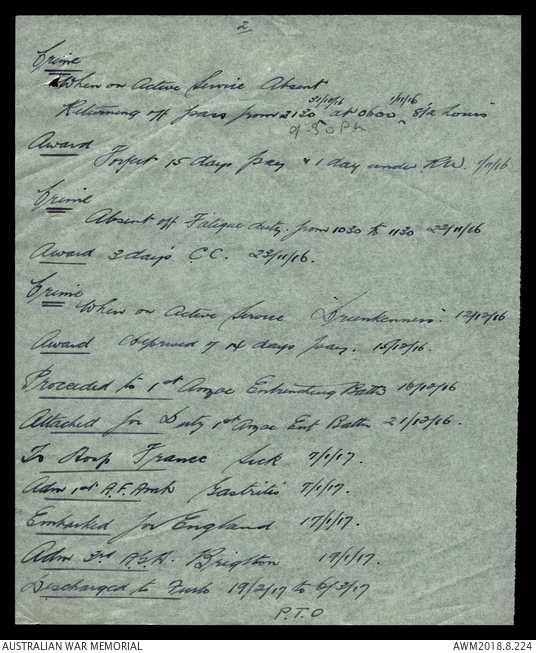 2
Crime
When on Active Service Absent
31/10/16 1/11/16
Returning off pass from 2130 at 0600 8½ hours
9.30 PM
Award
Forfeit 15 days pay & 1 day under R.W. 7/11/16
Crime
Absent off Fatigue duty. from 1030 to 1130 22/11/16
Award 3 days C.C. 23/11/16.
Crime
When on Active Service "Drunkenness". 12/12/16
Award Deprived of 14 days pay. 15/12/16.
Proceeded to 1st Anzac Entrenching Battn 18/12/16
Attached for Duty 1st Anzac Ent Battn 21/12/16.
To Hosp France Sick 7/1/17.
Adm 1st A.F. Amb Gastritis 7/1/17.
Embarked for England 17/1/17.
Adm 3rd A.G.H. Brighton 19/1/17.
Discharged to Furlo 19/2/17 to 6/3/17
P.T.O
AUSTRALIAN WAR MEMORIAL
AWM2018.8.224